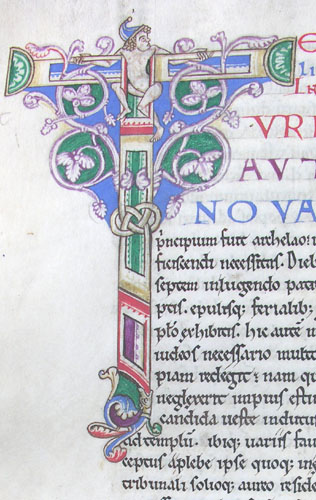 E
li
In
URI
AUT
NOVA
p̄ncipium fuit archelao:
ficiscendi necessitas. Dieb
septem in lugendo patr
ptis. epulisq; ferialib;
plo exhibitis. hic autē
iudeos necessario mult
piam redegit: nam qu
neglexerit impius esti
candida ueste indutus
ad templū. ibiq; uariis fau
ceptus a plebe ipse quoq; in
tribunali solioq; aureo reside